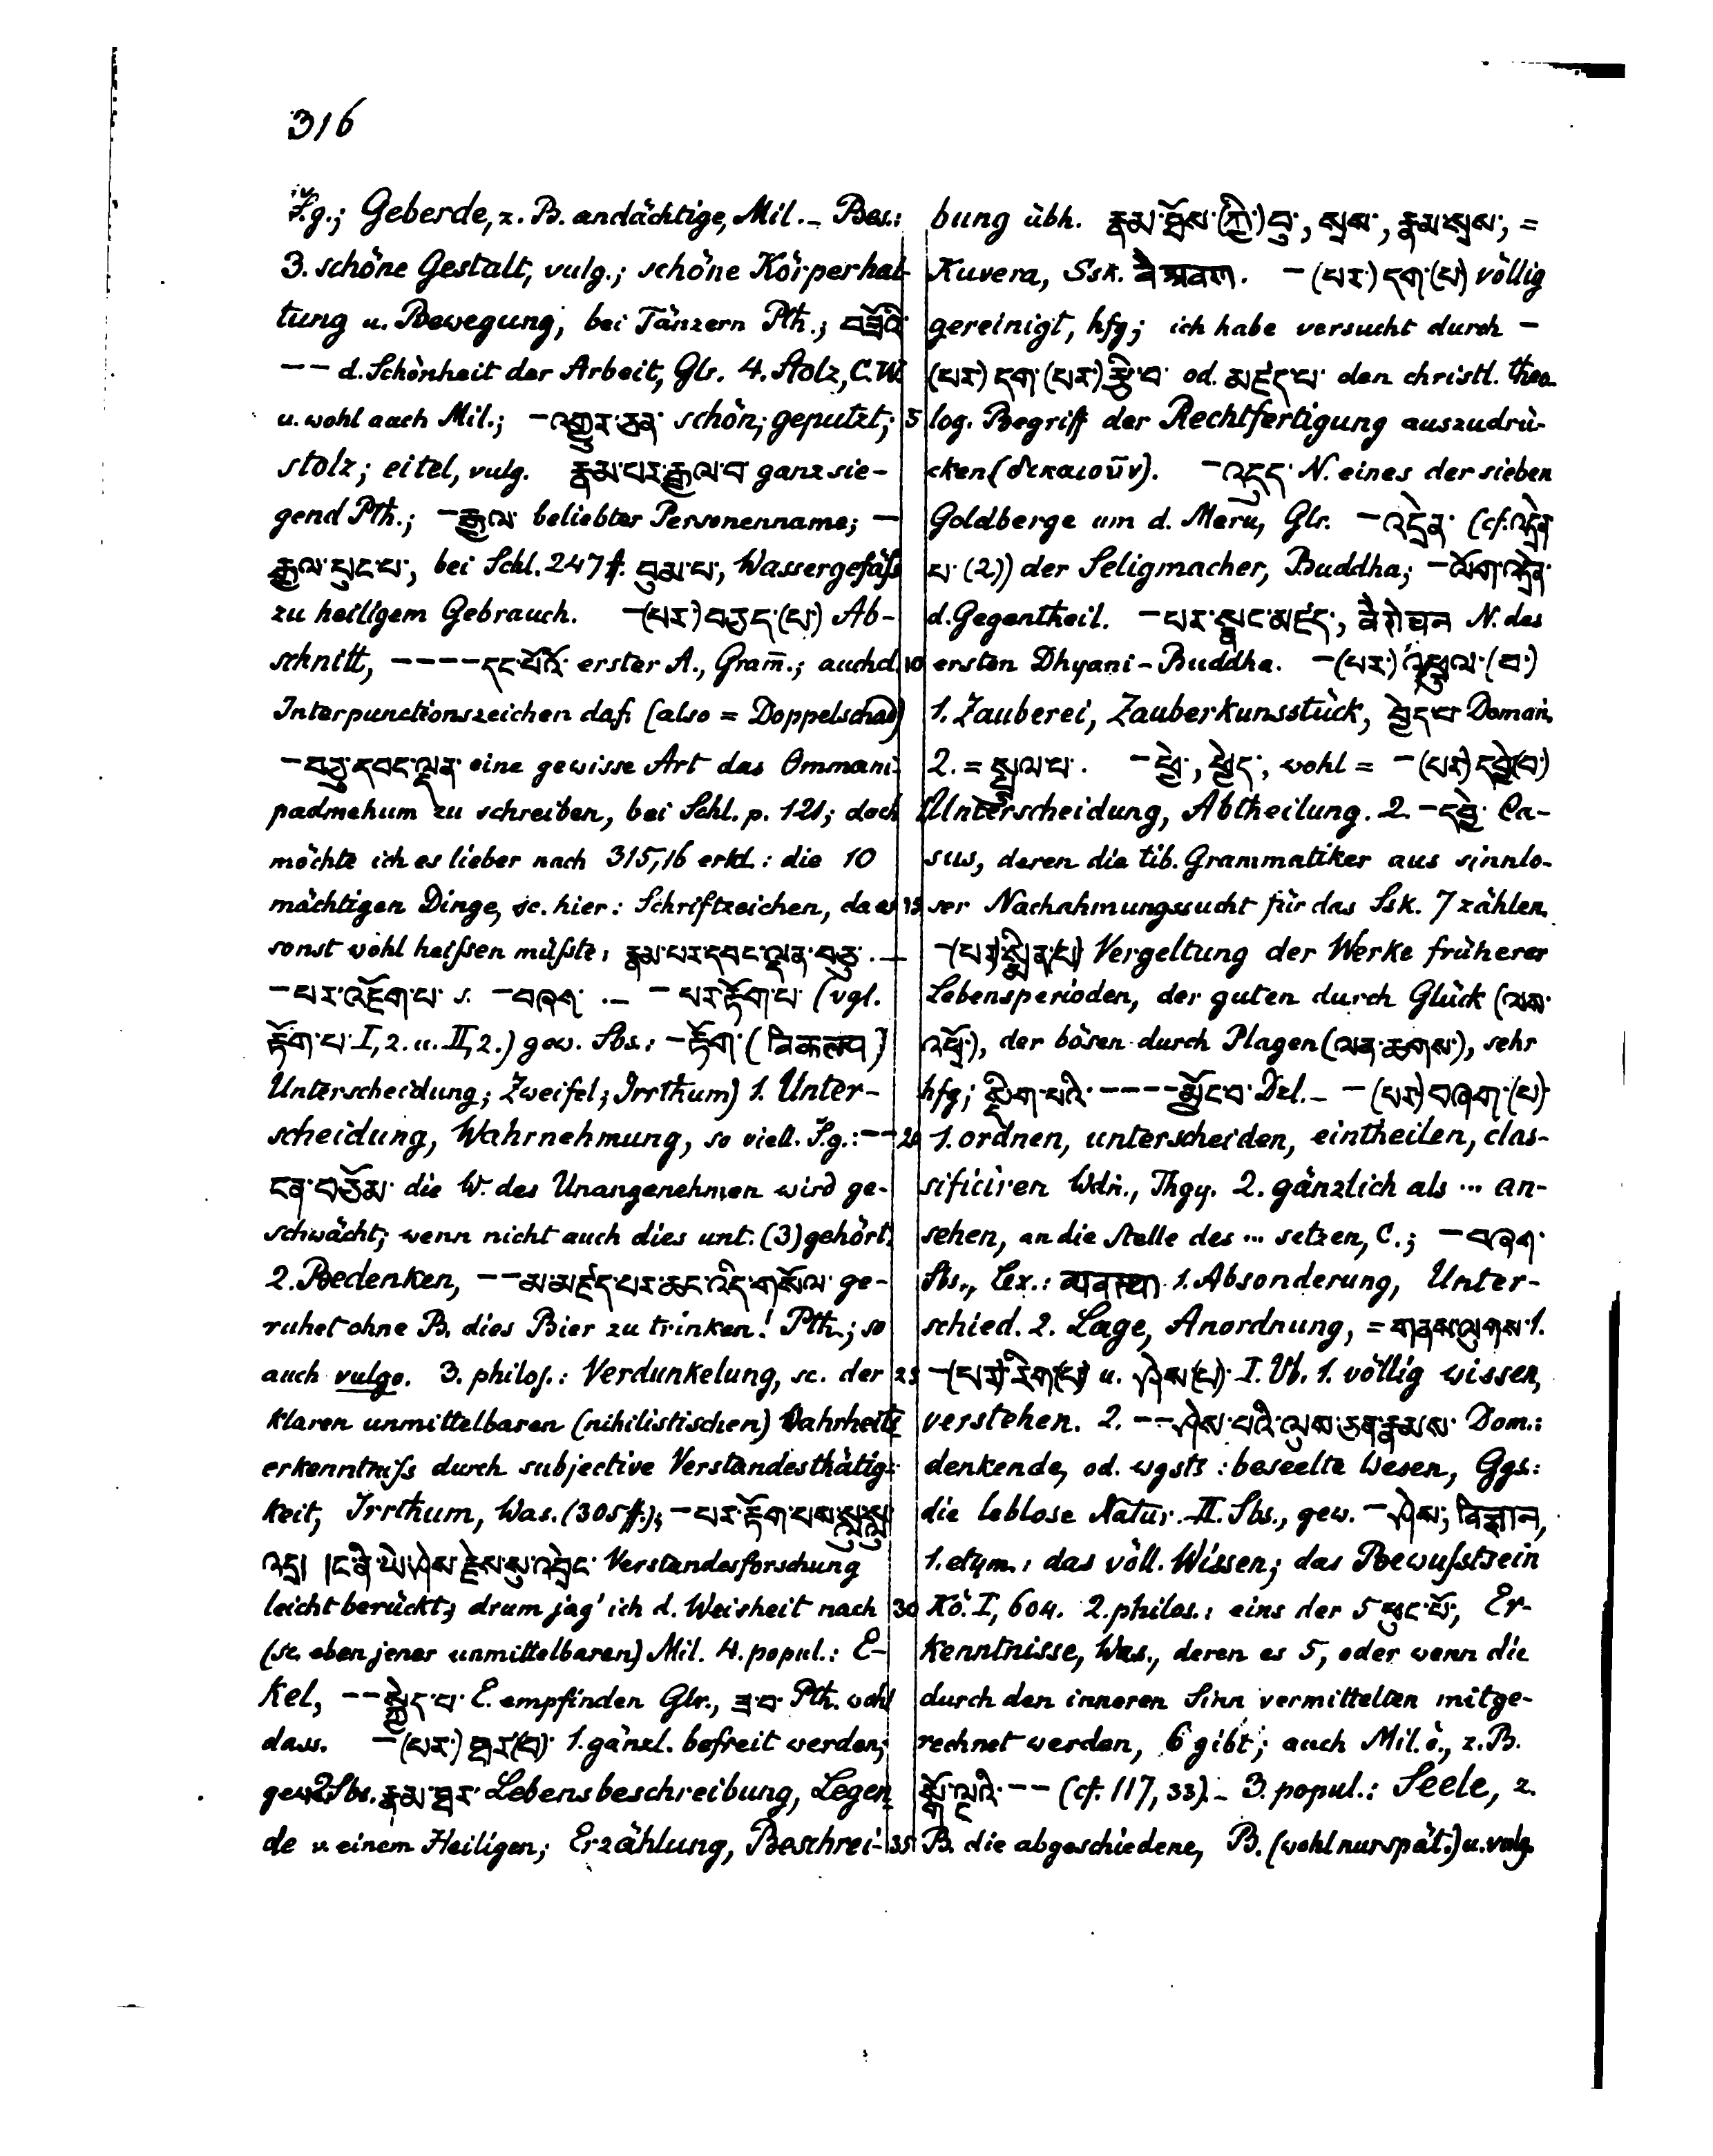 316
S.g.; Geberde, z. B. andächtige, Mil. – Bes.:
3. schöne Gestalt, vulg.; schöne Körperhal-
tung u. Bewegung, bei Tänzern Pth.; བཟོའི་
–– d. Schönheit der Arbeit, Glr. 4. Stolz, C. W.
u. wohl auch Mil.; –འགྱུར་ཅན་ schön; geputzt;
stolz; eitel, vulg. རྣམ་པར་རྒྱལ་བ་ ganz sie-
gend Pth.; –རྒྱལ་ beliebter Personenname; –
རྒྱལ་བུང་པ་, bei Schl. 247 ff. བུམ་པ་, Wassergefäß
zu heiligem Gebrauch. –(པར་)བཅད་(པ་) Ab-
schnitt, ––––དང་པོའོ་ erster A., Gram̄.; auch d.
Interpunctionszeichen daf. (also = Doppelschad)
–བཅུ་དབང་ལྡན་ eine gewisse Art das Ommani-
padmehum zu schreiben, bei Schl. p. 121; doch
möchte ich es lieber nach 315,16 erkl.: die 10
mächtigen Dinge, sc. hier: Schriftzeichen, da es
sonst wohl heißen müßte: རྣམ་པར་དབང་ལྡན་བཅུ་. –
–པར་འཇོག་པ་ s. –བཞག་ . – –པར་རྟོག་པ་ (vgl.
རྟོག་པ་ I, 2. u. II, 2.) gew. Sbs.: –རྟོག་ (विकल्प)
Unterscheidung; Zweifel; Irrthum) 1. Unter-
scheidung, Wahrnehmung, so viell. S.g.: ––
ངན་བཅོམ་ die W. des Unangenehmen wird ge-
schwächt; wenn nicht auch dies unt. (3) gehört.
2. Bedenken, ––མ་མཛད་པར་ཆང་འདི་གསོལ་ ge-
ruhet ohne B. dies Bier zu trinken! Pth.; so
auch vulgo. 3. philos.: Verdunkelung, sc. der
klaren unmittelbaren (nihilistischen) Wahrheits
erkenntniß durch subjective Verstandesthätig-
keit, Irrthum, Was. (305 ff.); –པར་རྟོག་པས་སླུ་སླུ་
འདྲ། །ང་ནི་ཡེ་ཤེས་རྗེས་སུ་འབྲེང་ Verstandesforschung
leicht berückt; drum jag' ich d. Weisheit nach
(sc. eben jener unmittelbaren) Mil. 4. popul.: E-
kel, ––སྐྱེད་པ་ E. empfinden Glr., ཟ་བ་ Pth. wohl
dass. –(པར་)ཐར་(བ)་ 1. gänzl. befreit werden;
gew. 2. Sbs. རྣམ་ཐར་ Lebensbeschreibung, Legen-
de v. einem Heiligen; Erzählung, Beschrei-
bung übh. རྣམ་ཐོས་(ཀྱི་)བུ་, སྲས་, རྣམ་སྲས་, =
Kuvera, Ssk. वैश्रवण. –(པར་)དག་(པ) völlig
gereinigt, hfg; ich habe versucht durch –
(པར་)དག་(པར་)རྩི་བ་ od. མཛད་པ་ den christl. theo-
5 log. Begriff der Rechtfertigung auszudrü-
cken (δικαιοῦν). –འདུད་ N. eines der sieben
Goldberge um d. Meru, Glr. –འདྲེན་ (cf. འདྲེན་
པ་ (2)) der Seligmacher, Buddha; –ལོག་འདྲེན་
d. Gegentheil. –པར་སྣང་མཛད་, वैरोचन N. des
10 ersten Dhyani-Buddha. –(པར་)འཕྲུལ་(བ་)
1. Zauberei, Zauberkunsstück, བྱེད་པ་ Doman.
2. = སྤྲུལ་པ་. –ཕྱེ་, ཕྱེད་, wohl = –(པར)དབྱེ(བ་)
1. Unterscheidung, Abtheilung. 2. –དབྱེ་ Ca-
sus, deren die tib. Grammatiker aus sinnlo-
15 ser Nachahmungssucht für das Ssk. 7 zählen.
–(པར)སྨིན་(པ) Vergeltung der Werke früherer
Lebensperioden, der guten durch Glück (ལས་
འཕྲོ་), der bösen durch Plagen (ལན་ཆགས་), sehr
hfg; སྡིག་པའི་ ––––མྱོང་བ་ Dzl. – –(པར)བཞག་(པ)་
20 1. ordnen, unterscheiden, eintheilen, clas-
sificiren Wdn̄., Thgy. 2. gänzlich als ... an-
sehen, an die Stelle des ... setzen, C.; –བཞག་
Sbs., Lex.: 1. Absonderung, Unter-
schied. 2. Lage, Anordnung, = གནས་ལུགས་ 1.
25 –(པར)རིག(པ) u. ཤེས(པ)་ I. Vb. 1. völlig wissen,
verstehen. 2. ––ཤེས་པའི་ལུས་ཅན་རྣམས་ Dom.:
denkende, od. wgsts: beseelte Wesen, Ggs.:
die leblose Natur. – II. Sbs., gew. –ཤེས་, विज्ञान,
1. etym.: das völl. Wissen; das Bewußtsein
30 Kö. I, 604. 2. philos.: eins der 5 ཕུང་པོ་, Er-
kenntnisse, Was., deren es 5, oder wenn die
durch den inneren Sinn vermittelten mitge-
rechnet werden, 6 gibt; auch Mil. ö., z. B.
སྒོ་ལྔའི་ –– (cf. 117, 33). – 3. popul.: Seele, z.
35 B. die abgeschiedene, B. (wohl nur spät.) u. vulg.